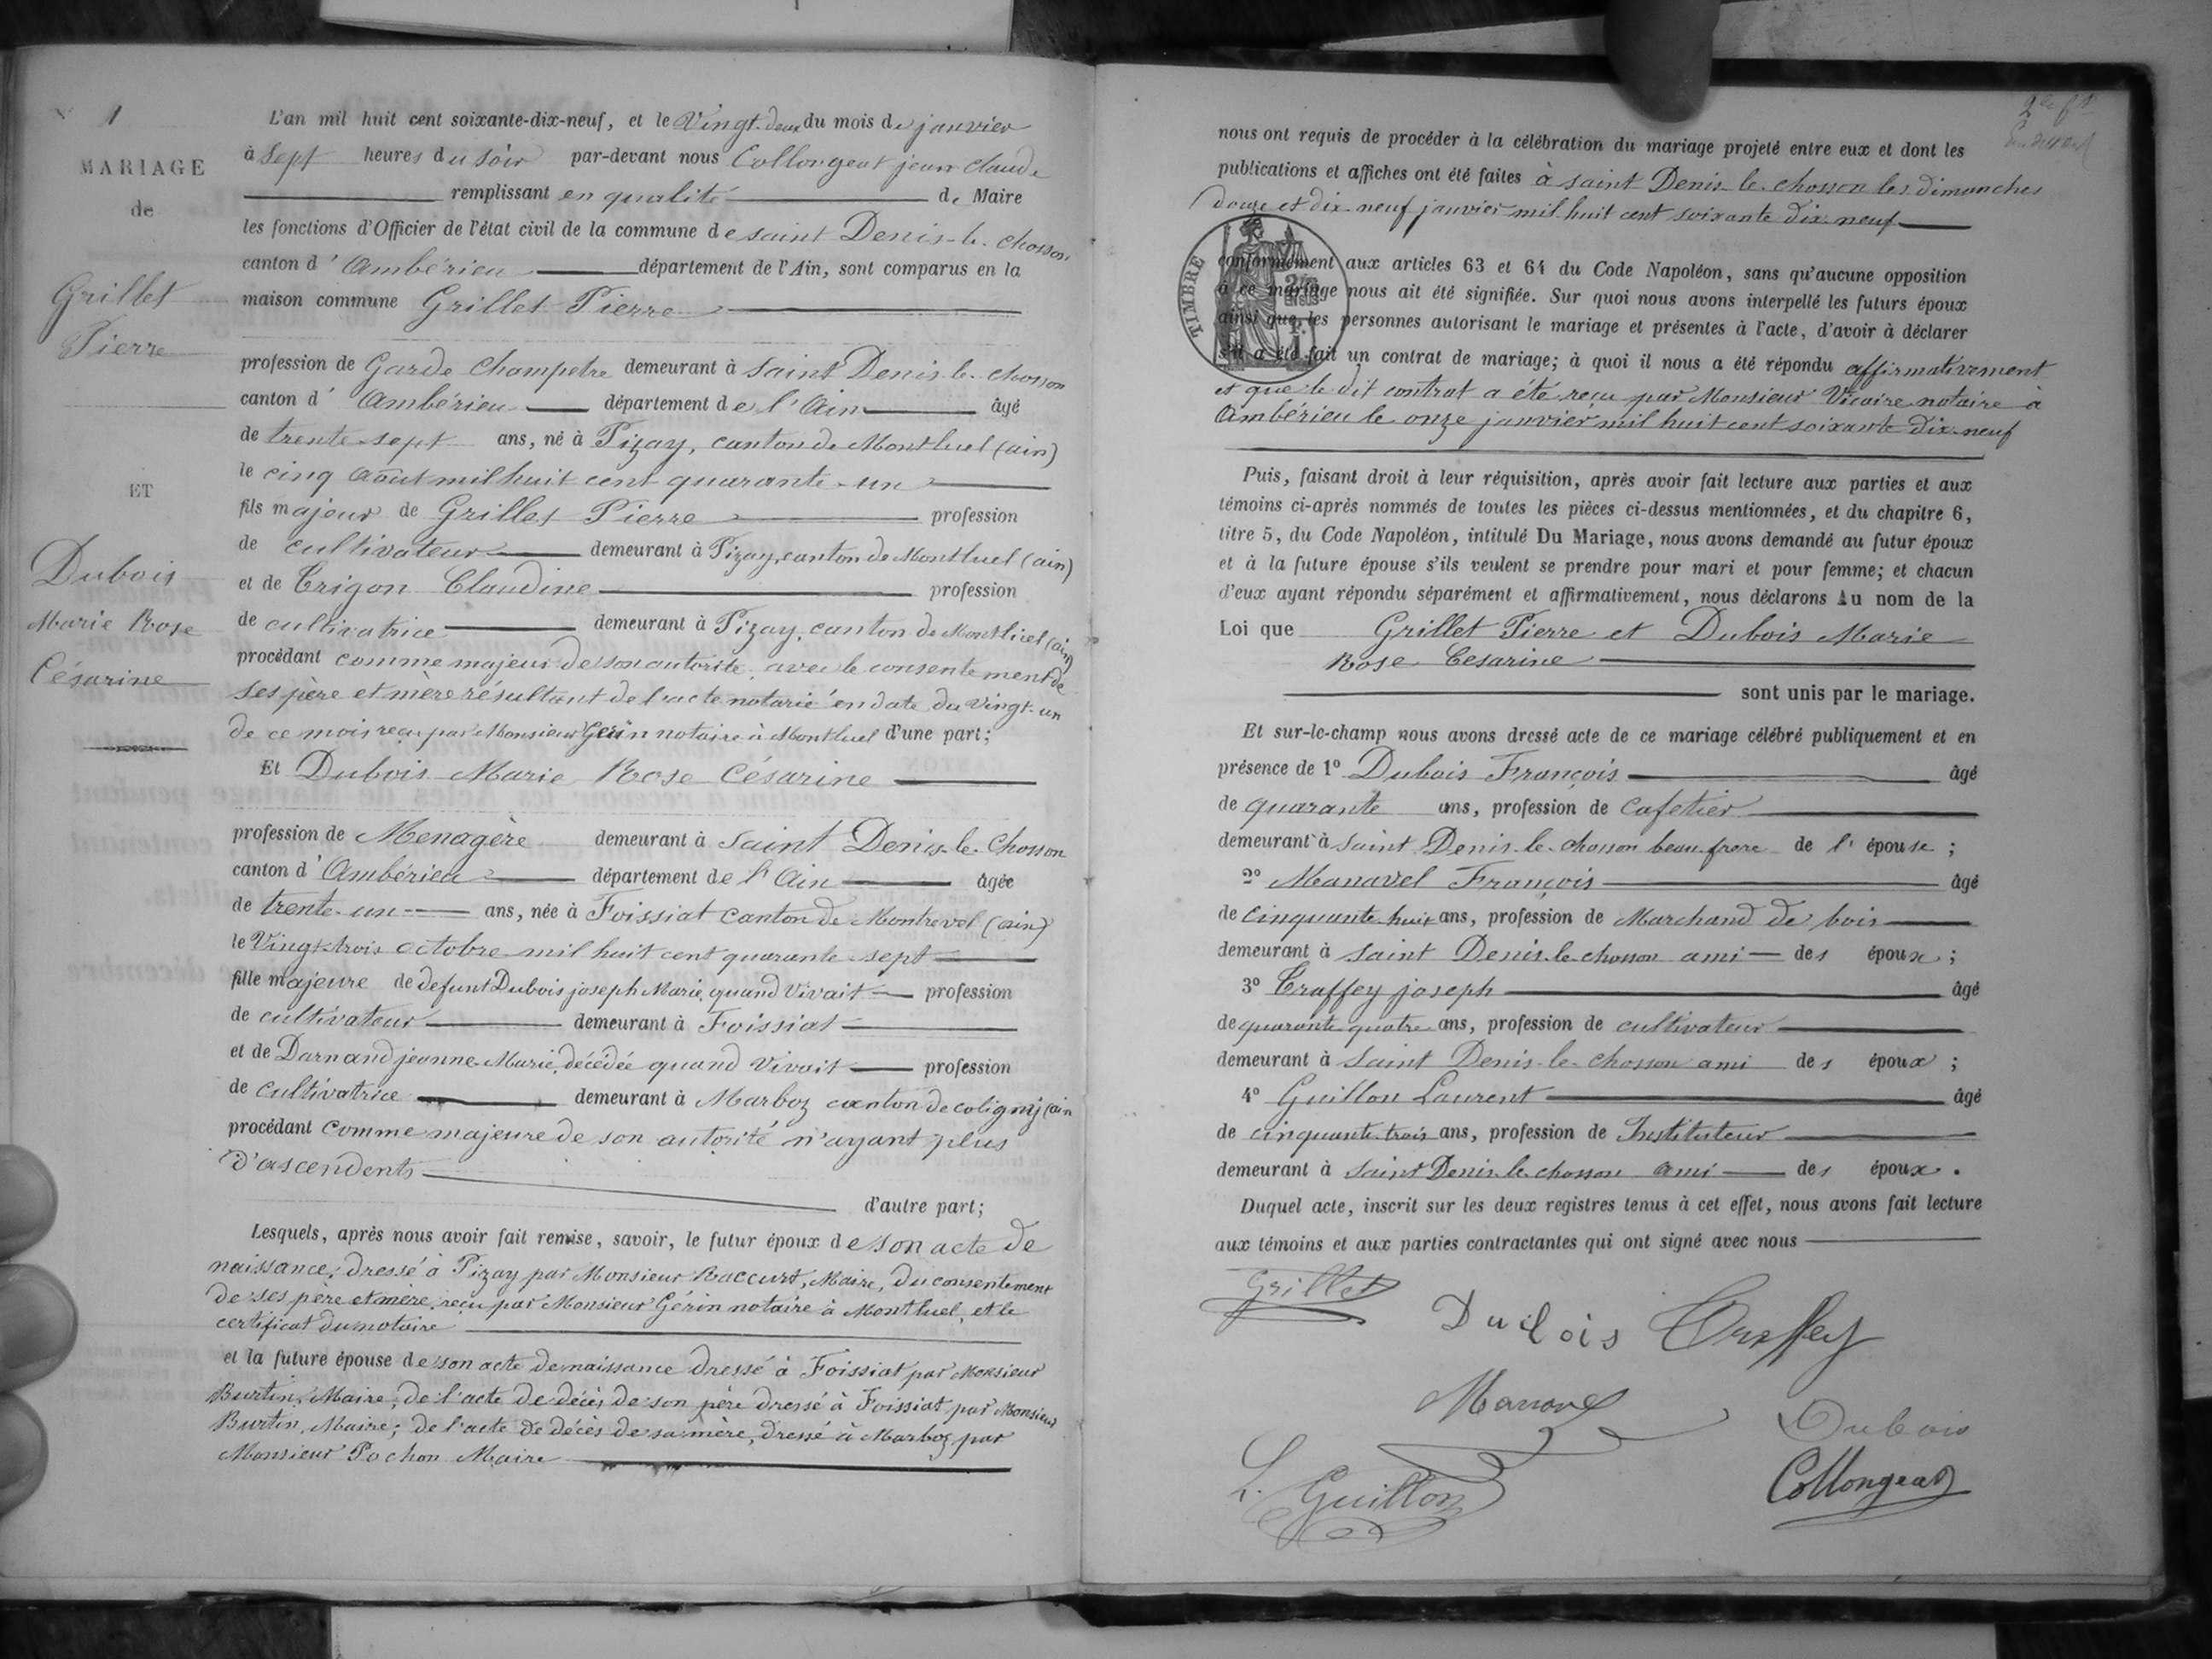 1
MARIAGE
de
Grillet
Pierre
ET
Dubois
Marie Rose
Césarine
L'an mil huit cent soixante-dix-neuf, et le Vingt-deux du mois de janvier
à Sept heures du soir par-devant nous Collongeat jean Claude
remplissant en qualité de Maire
les fonctions d'Officier de l'état civil de la commune de saint Denis-le-chosson,
canton d'Ambérieu département de l'Ain, sont comparus en la
maison commune Grillet Pierre
profession de Garde Champetre demeurant à saint Denis-le-chosson
canton d'Ambérieu département de l'Ain âgé
de trente-sept ans, né à Pizay, canton de Montluel (ain)
le cinq Août mil huit cent quarante-un
fils majeur de Grillet Pierre profession
de cultivateur demeurant à Pizay, canton de Montluel (ain)
et de Trigon Claudine profession
de cultivatrice demeurant à Pizay, canton de Montluel (ain)
procédant comme majeur de son autorité, avec le consentement de
ses père et mère résultant de l'acte notarié en date du vingt-un
de ce mois reçu par Monsieur Gérin notaire à Montluel d'une part;
Et Dubois Marie Rose Césarine
profession de Menagère demeurant à saint Denis-le-Chosson
canton d'Ambérieu département de l'Ain âgée
de trente-un ans, née à Foissiat canton de Montrevel (ain)
le Vingt-trois octobre mil huit cent quarante-sept
fille majeure de defunt Dubois joseph Marie, quand vivait profession
de cultivateur demeurant à Foissiat
et de Darnand jeanne-Marie, décédée quand vivait profession
de cultivatrice demeurant à Marboz canton de coligny (ain
procédant comme majeure de son autorité n'ayant plus
d'ascendents
d'autre part;
Lesquels, après nous avoir fait remise, savoir, le futur époux de son acte de
naissance, dressé à Pizay par Monsieur Raccurt, Maire, du consentement
de ses père et mère, reçu par Monsieur Gérin notaire à Montluel, et le
certificat du notaire
et la future épouse de son acte de naissance dressé à Foissiat par Monsieur
Burtin, Maire, de l'acte de décès de son père dressé à Foissiat par Monsieur
Burtin, Maire; de l'acte de décès de sa mère, dressé à Marboz par
Monsieur Pochon Maire
nous ont requis de procéder à la célébration du mariage projeté entre eux et dont les
publications et affiches ont été faites à saint Denis-le-chosson les dimanches
douze et dix-neuf janvier mil huit cent soixante dix-neuf
TIMBRE
conformément aux articles 63 et 64 du Code Napoléon, sans qu'aucune opposition
à ce mariage nous ait été signifiée. Sur quoi nous avons interpellé les futurs époux
ainsi que les personnes autorisant le mariage et présentes à l'acte, d'avoir à déclarer
s'il a été fait un contrat de mariage; à quoi il nous a été répondu affirmativement
et que le dit contrat a été reçu par Monsieur Vicaire notaire à
Ambérieu le onze janvier mil huit cent soixante dix-neuf
Puis, faisant droit à leur réquisition, après avoir fait lecture aux parties et aux
témoins ci-après nommés de toutes les pièces ci-dessus mentionnées, et du chapitre 6,
titre 5, du Code Napoléon, intitulé Du Mariage, nous avons demandé au futur époux
et à la future épouse s'ils veulent se prendre pour mari et pour femme; et chacun
d'eux ayant répondu séparément et affirmativement, nous déclarons Au nom de la
Loi que Grillet Pierre et Dubois Marie
Rose Cesarine
sont unis par le mariage.
Et sur-le-champ nous avons dressé acte de ce mariage célébré publiquement et en
présence de 1º Dubois François âgé
de quarante ans, profession de Cafetier
demeurant à saint Denis-le-chosson beau-frere de l'épouse;
2º Manavel François âgé
de cinquante-huit ans, profession de Marchand de bois
demeurant à saint Denis-le-chosson ami des époux;
3º Traffey joseph âgé
de quarante quatre ans, profession de cultivateur
demeurant à saint Denis-le-chosson ami des époux;
4º Guillon Laurent âgé
de cinquante-trois ans, profession de Instituteur
demeurant à saint Denis-le-chosson ami des époux.
Duquel acte, inscrit sur les deux registres tenus à cet effet, nous avons fait lecture
aux témoins et aux parties contractantes qui ont signé avec nous
Grillet
Dubois Traffey
Manavel
Dubois
L. Guillon
Collongeat